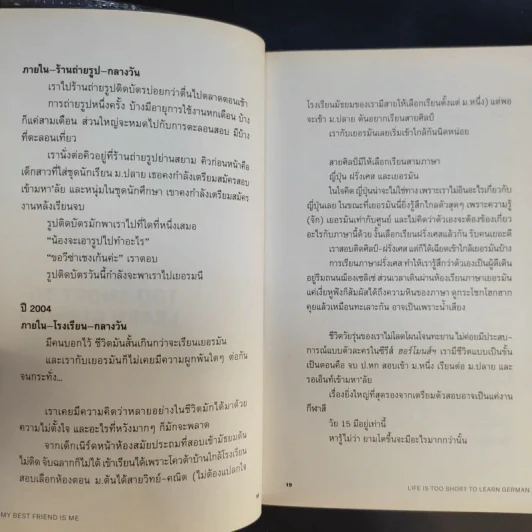 ภายใน–ร้านถ่ายรูป–กลางวัน
เราไปร้านถ่ายรูปติดบัตรบ่อยกว่าตื่นไปตลาดตอนเช้า
การถ่ายรูปหนึ่งครั้ง บ้างมีอายุการใช้งานหกเดือน บ้าง
ก็แค่สามเดือน ส่วนใหญ่จะหมดไปกับการตะลอนสอบ มีบ้าง
ที่ตะลอนเที่ยว
เรานั่งต่อคิวอยู่ที่ร้านถ่ายรูปย่านสยาม คิวก่อนหน้าคือ
เด็กสาวที่ใส่ชุดนักเรียน ม.ปลาย เธอคงกำลังเตรียมสมัครสอบ
เข้ามหา'ลัย และหนุ่มในชุดนักศึกษา เขาคงกำลังเตรียมสมัคร
งานหลังเรียนจบ
รูปติดบัตรมักพาเราไปที่ใดที่หนึ่งเสมอ
“น้องจะเอารูปไปทำอะไร”
“ขอวีซ่าเชงเก้นค่ะ” เราตอบ
รูปติดบัตรวันนี้กำลังจะพาเราไปเยอรมนี
ปี 2004
ภายใน–โรงเรียน–กลางวัน
มีคนบอกไว้ ชีวิตมันสั้นเกินกว่าจะเรียนเยอรมัน
และเรากับเยอรมันก็ไม่เคยมีความผูกพันใดๆ ต่อกัน
จนกระทั่ง...
เราเคยมีความคิดว่าหลายอย่างในชีวิตมักได้มาด้วย
ความไม่ตั้งใจ และอะไรที่หวังมากๆ ก็มักจะพลาด
จากเด็กเนิร์ดหน้าห้องสมัยประถมที่สอบเข้ามัธยมต้น
ไม่ติด จับฉลากก็ไม่ได้ เข้าเรียนได้เพราะโควต้าบ้านใกล้โรงเรียน
สอบเลือกห้องตอน ม.ต้นได้สายวิทย์-คณิต (ไม่ต้องแปลกใจ
MY BEST FRIEND IS ME
โรงเรียนมัธยมของเรามีสายให้เลือกเรียนตั้งแต่ ม.หนึ่ง) แต่พอ
จะเข้า ม.ปลาย ดันอยากเรียนสายศิลป์
เรากับเยอรมันเลยเริ่มเข้าใกล้กันนิดหน่อย
สายศิลป์มีให้เลือกเรียนสามภาษา
ญี่ปุ่น ฝรั่งเศส และเยอรมัน
ในใจคิด ญี่ปุ่นน่าจะไม่ใช่ทาง เพราะเราไม่อินอะไรเกี่ยวกับ
ญี่ปุ่นเลย ในขณะที่เยอรมันนี่ยิ่งรู้สึกไกลตัวสุดๆ เพราะความรู้
(จัก) เยอรมันเท่ากับศูนย์ และไม่คิดว่าตัวเองจะต้องข้องเกี่ยว
อะไรกับภาษานี้ด้วย งั้นเลือกเรียนฝรั่งเศสแล้วกัน รับคนเยอะดี
เราสอบติดศิลป์-ฝรั่งเศส แต่ก็ได้เฉียดเข้าใกล้เยอรมันบ้าง
การเรียนภาษาฝรั่งเศส ทำให้เรารู้สึกว่าตัวเองเป็นผู้ดีเดิน
อยู่ริมถนนฌ็องเซลิเซ่ ส่วนเวลาเดินผ่านห้องเรียนภาษาเยอรมัน
แค่เงี่ยหูฟังก็สัมผัสได้ถึงความหินของภาษา ดุกระโชกโฮกฮาก
คุยแล้วเหมือนทะเลาะกัน อาจเป็นเพราะน้ำเสียง
ชีวิตวัยรุ่นของเราไม่โลดโผนโจนทะยาน ไม่ค่อยมีประสบ-
การณ์แบบตัวละครในซีรีส์ ฮอร์โมนส์ฯ เรามีชีวิตแบบเป็นขั้น
เป็นตอนคือ จบ ป.หก สอบเข้า ม.หนึ่ง เรียนต่อ ม.ปลาย และ
รอเอ็นท์เข้ามหา'ลัย
เรื่องยิ่งใหญ่ที่สุดรองจากเตรียมตัวสอบอาจเป็นแค่งาน
กีฬาสี
วัย 15 มีอยู่เท่านี้
หารู้ไม่ว่า ยามโตขึ้นจะมีอะไรมากกว่านั้น
19
LIFE IS TOO SHORT TO LEARN GERMAN